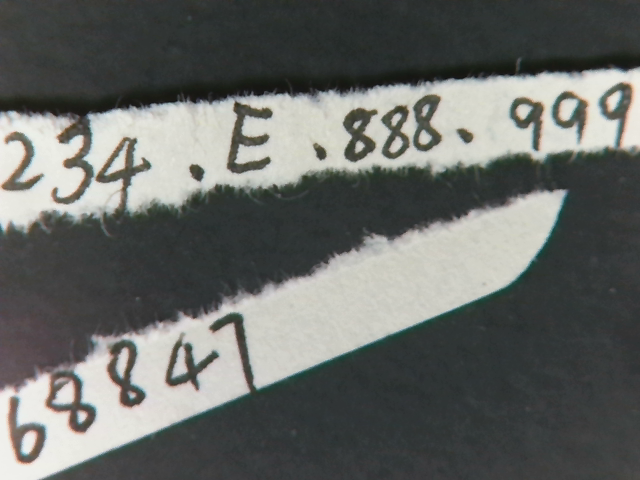 234.E.888.999
68847